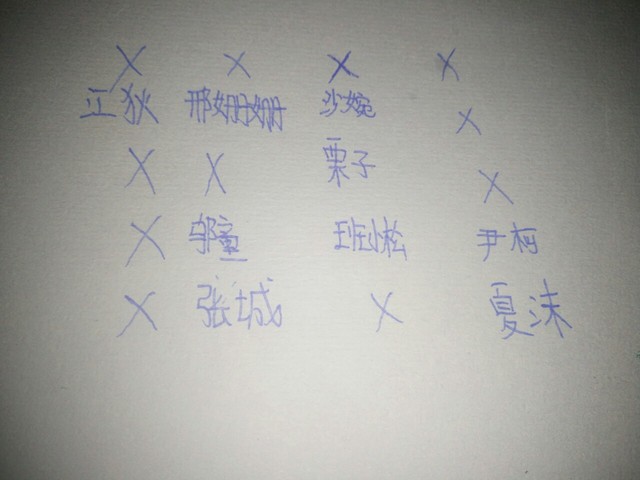 × × × ×
江狄 邢姗姗 沙婉 ×
× × 栗子 ×
× 邬童 班小松 尹柯
× 张城 × 夏沫